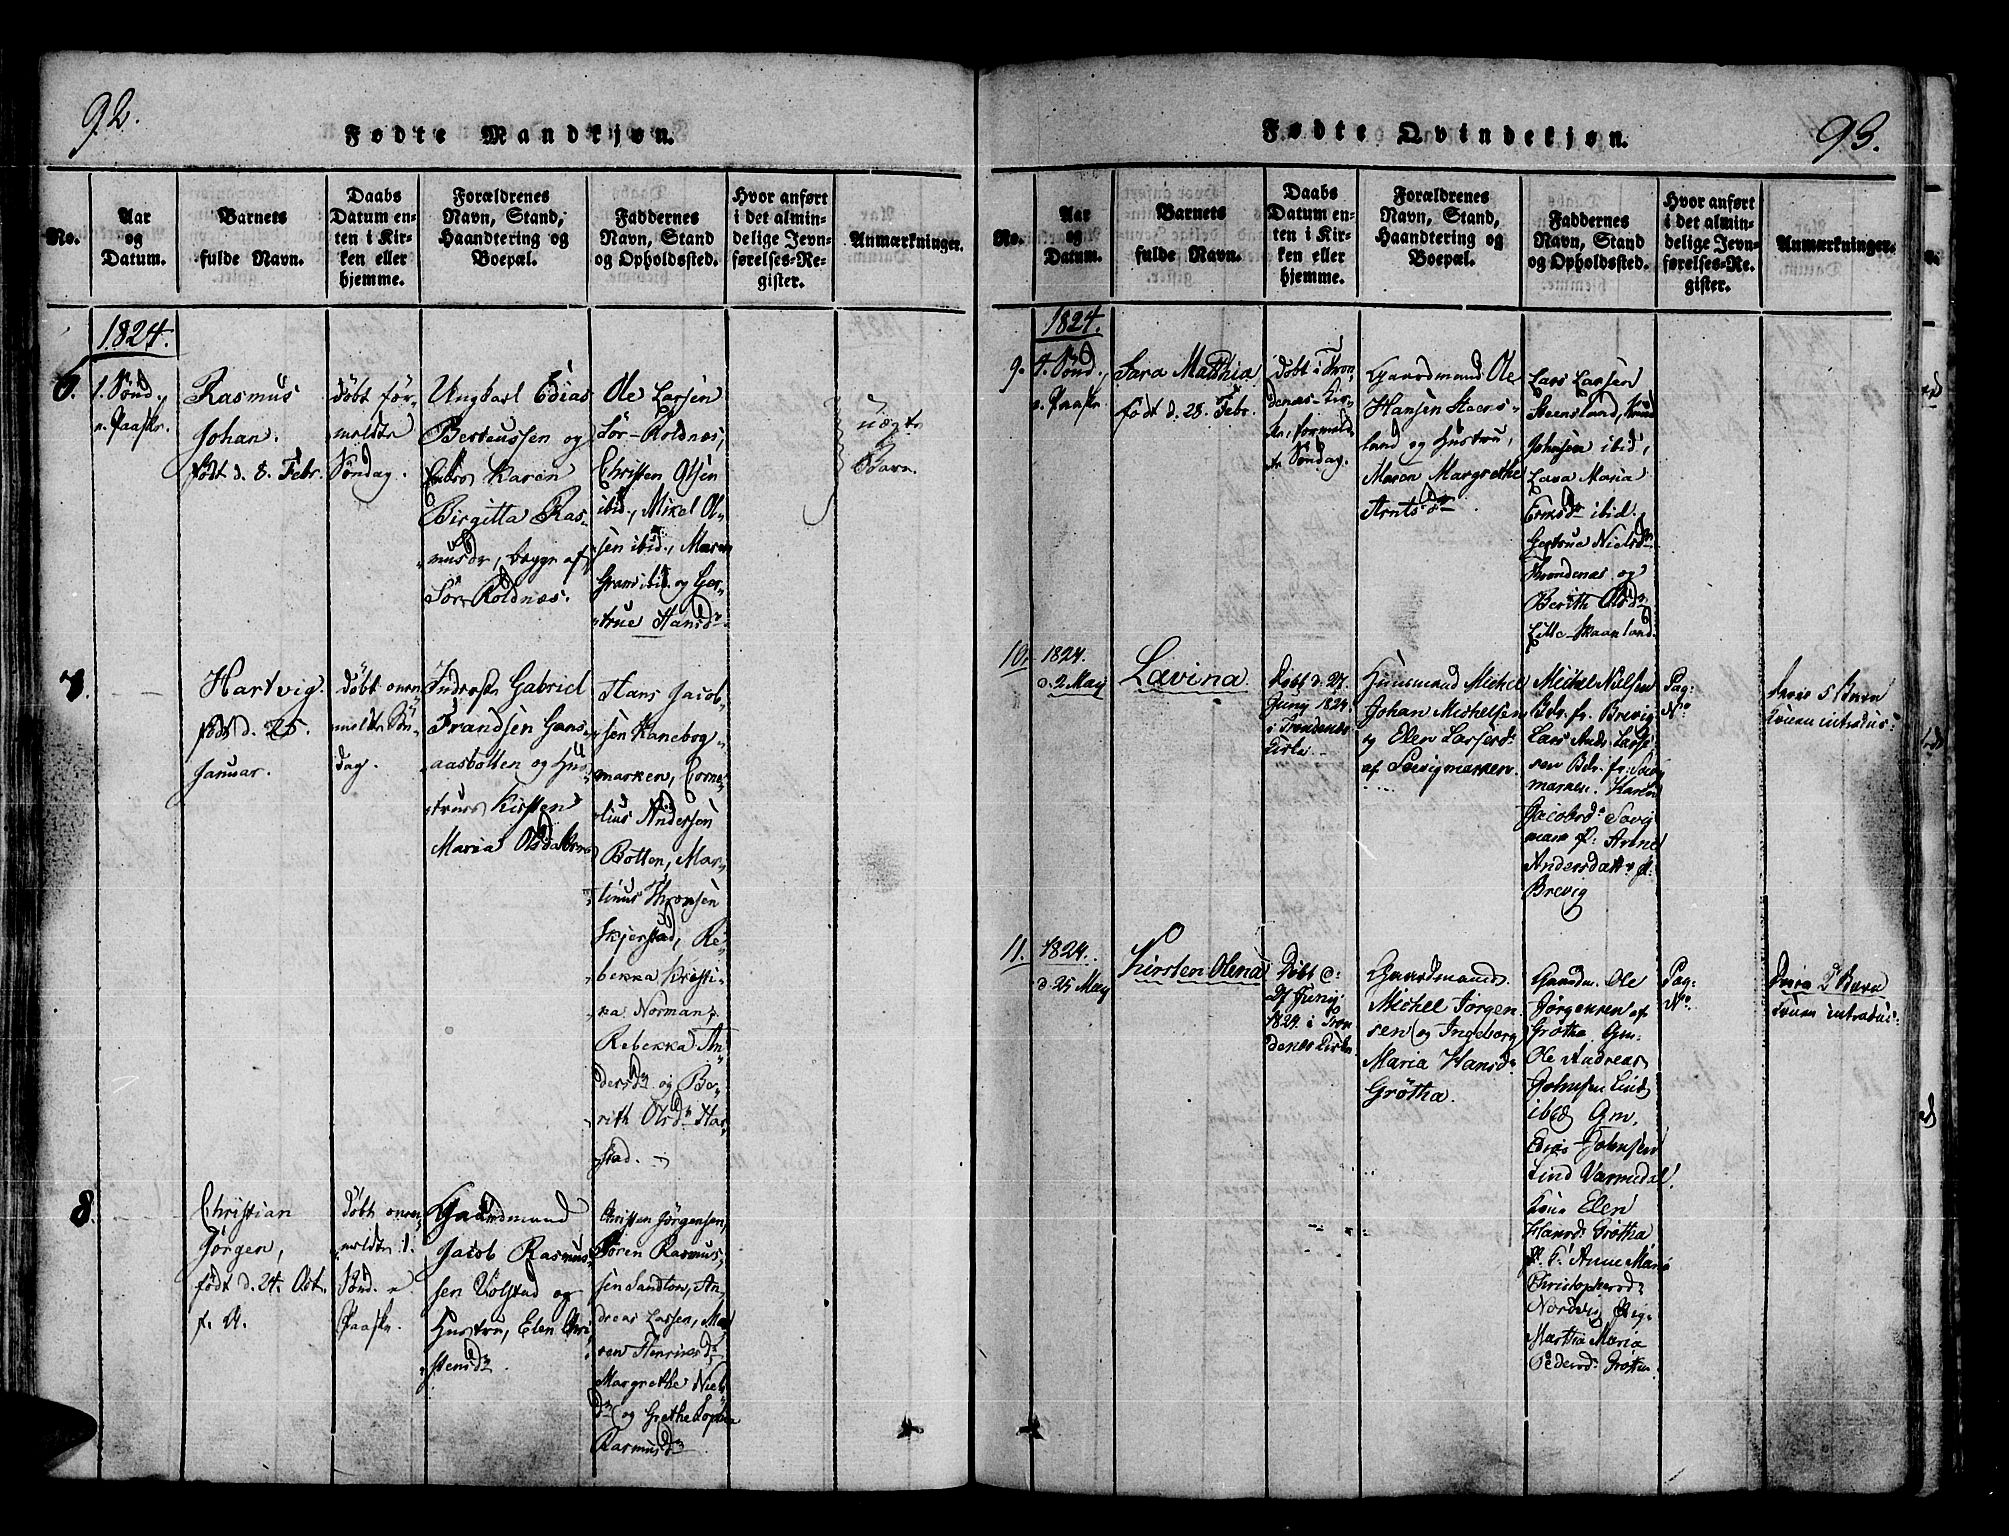 92.
Fødte Mandkjøn.
No.
Aar
og
Datum.
Barnets
fulde Navn.
Daabs
Datum en-
ten i Kir-
ken eller
hjemme.
Forældrenes
Navn, Stand,
Haandtering og
Boepæl.
Faddernes
Navn, Stand
og Opholdssted.
Hvor anført
i det almin-
delige Jevn-
førelses-Re-
gister.
Anmærkninger.
1824.
6.
1. Sønd.
Rasmus
Johan.
født d. 8. Febr.
døbt for-
meldte
Søndag.
Ungkarl Edias
Berteussen og
Karen
Birgitta Ras-
musdr, begge af
Sør-Roldnæs.
Ole Larsen
Sör-Roldnæs,
Christen Olsen
ibid., Mikel Ol-
sen ibid., Maren
Grams ibid. og Ger-
true Hansdr
uægte
Barn.
7.
Hartvig.
født d. 25.
Januar.
døbt oven-
meldte Søn-
dag.
Gabriel
Frandsen Gans-
aasbotten og Hu-
strue Kirsten
Maria Olsdr
Hans Jacob-
sen Kanebog-
marken, Corne-
lius Andersen
Botten, Mar-
tinus Thronsen
Skjerstad, Re-
bekka Kristi-
na Normann,
Rebekka An-
dersdr og Be-
rith Olsdr Har-
stad.
8.
Christian
Jørgen,
født d. 24. Oct.
f. A.
døbt oven-
meldte 1.
Sønd. e.
Paaske.
Gaardmand
Jacob Rasmus-
sen Volstad og
Hustru, Elen Chri-
stensdr
Christen Jørgensen,
Søren Rasmus-
sen Sandtorv, An-
dreas Larsen, Ma-
ren Henriksdr
Margrethe Niels-
dr og Grethe Sophia
Rasmusdr
93.
Fødte Qvindekjøn.
No.
Aar
og
Datum.
Barnets
fulde Navn.
Daabs
Datum en-
ten i Kir-
ken eller
hjemme.
Forældrenes
Navn, Stand,
Haandtering og
Boepæl.
Faddernes
Navn, Stand
og Opholdssted.
Hvor anført
i det almin-
delige Jevn-
førelses-Re-
gister.
Anmærkninger.
1824.
9.
4. Sønd.
e. Paaske.
Sara Mathia
født d. 28. Febr.
døbt i Tron-
denæs Kir-
ke, formeld-
te Søndag.
Gaardmand Ole
Hansen Steens-
land og Hustru,
Maren Margrethe
Arntsdr
Lars Larsen
Steensland,
Johnsen ibid,
Lava Maria
ibid.
Gertrue Nielsdr
Trondenæs og
Berith Olsdr
Lille-Skaanland.
10.
1824.
d. 2 May
Lavina
Døbt d. 27
Juny 1824.
i Trondenæs
Kirke
Huusmand Michel
Johan Michelsen
og Elen Larsensdr
af Sørvigmarken.
Michel Nielsen
fr. Brevig
Lars Andr. Larse-
sen
marken. Karen
Jacobsdr Sørvig
Anne
Andersdatter fr.
Brevig
Pag:
No
5 Barn
Konen introdus:
11.
1824.
d. 25 May
Kirsten Olena
Døbt d:
27 Juny
1824. i Tron
denæs Kirke
Gaardmand
Michel Jörgen
sen og Ingeborg
Maria Hansdr
Grötha.
Gaardm. Ole
Jørgensen af
Grötha Gm:
Ole Andreas
Johnsen Lind
ibid Gm,
Johnsen
Lind Varmedal.
Kone Elen
Hansdr Grøtha
Anne Maria
Christophersdr
Nordvig Pig.
Martha Maria
Pedersdr Grötha.
Pag:
No
2 Barn
Konen introdus: